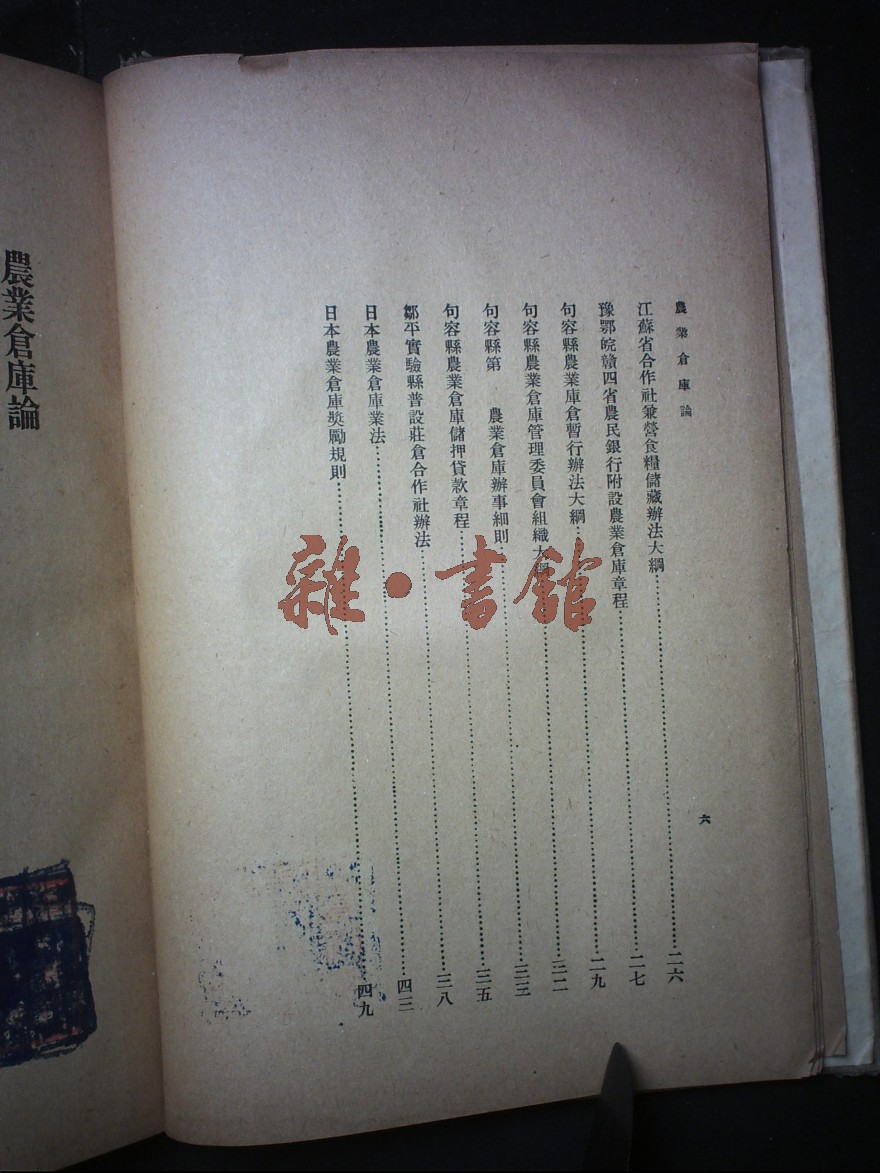 農業倉庫論
江蘇省合作社兼營食糧儲藏辦法大綱……二六
豫鄂皖贛四省農民銀行附設農業倉庫章程……二七
句容縣農業庫倉暫行辦法大綱……二九
句容縣農業倉庫管理委員會組織大綱……三二
句容縣第　農業倉庫辦事細則……三三
句容縣農業倉庫儲押貸款章程……三五
鄒平實驗縣普設莊倉合作社辦法……三八
日本農業倉庫業法……四三
日本農業倉庫獎勵規則……四九
六
農業倉庫論
雜·書館